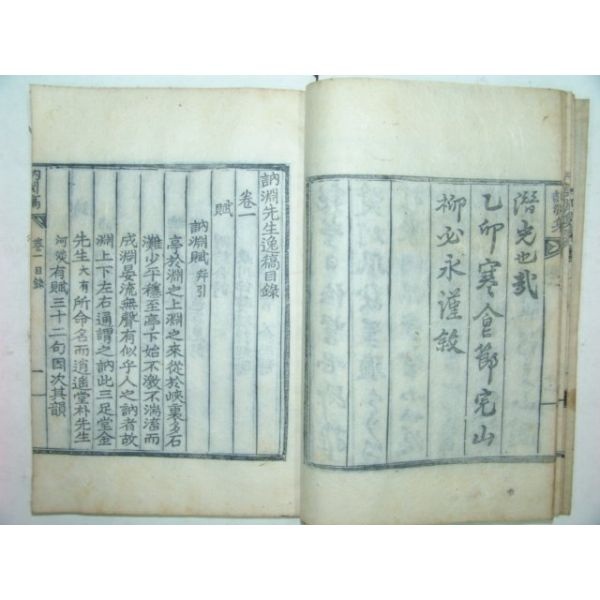 潛光也哉
乙卯寒食節完山
柳必永謹敍
訥淵先生逸稿目錄
卷一
賦
訥淵賦 幷引
亭於淵之上淵之來從於峽裏多石
灘少平穩至亭下始不激不湍渟而
成淵晏流無聲有似乎人之訥者故
淵上下左右通謂之訥此三足堂金
先生大有所命名而逍遙堂朴先生
河淡有賦三十二句因次其韻
卷一目錄
一